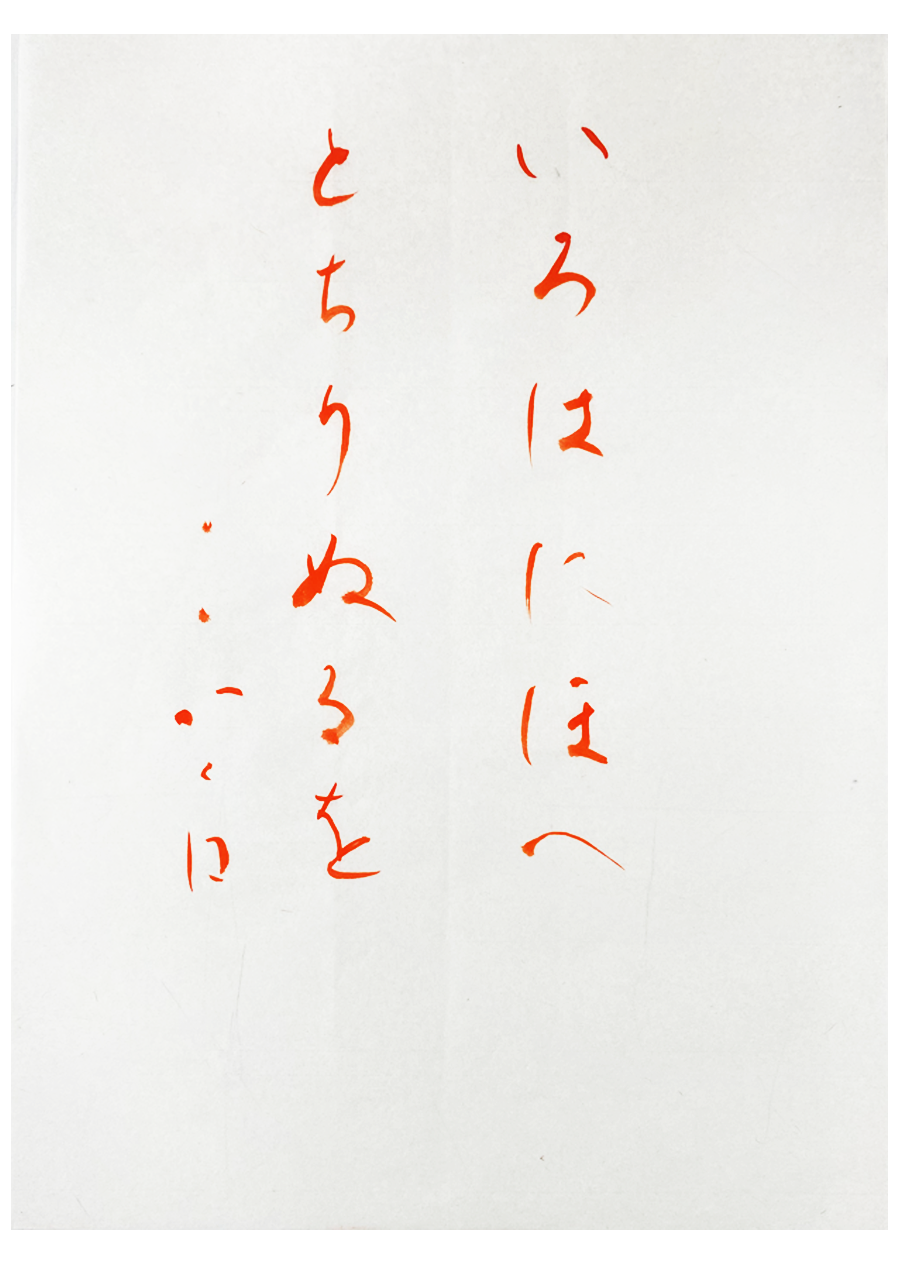 いろはにほへ
とちりぬるを